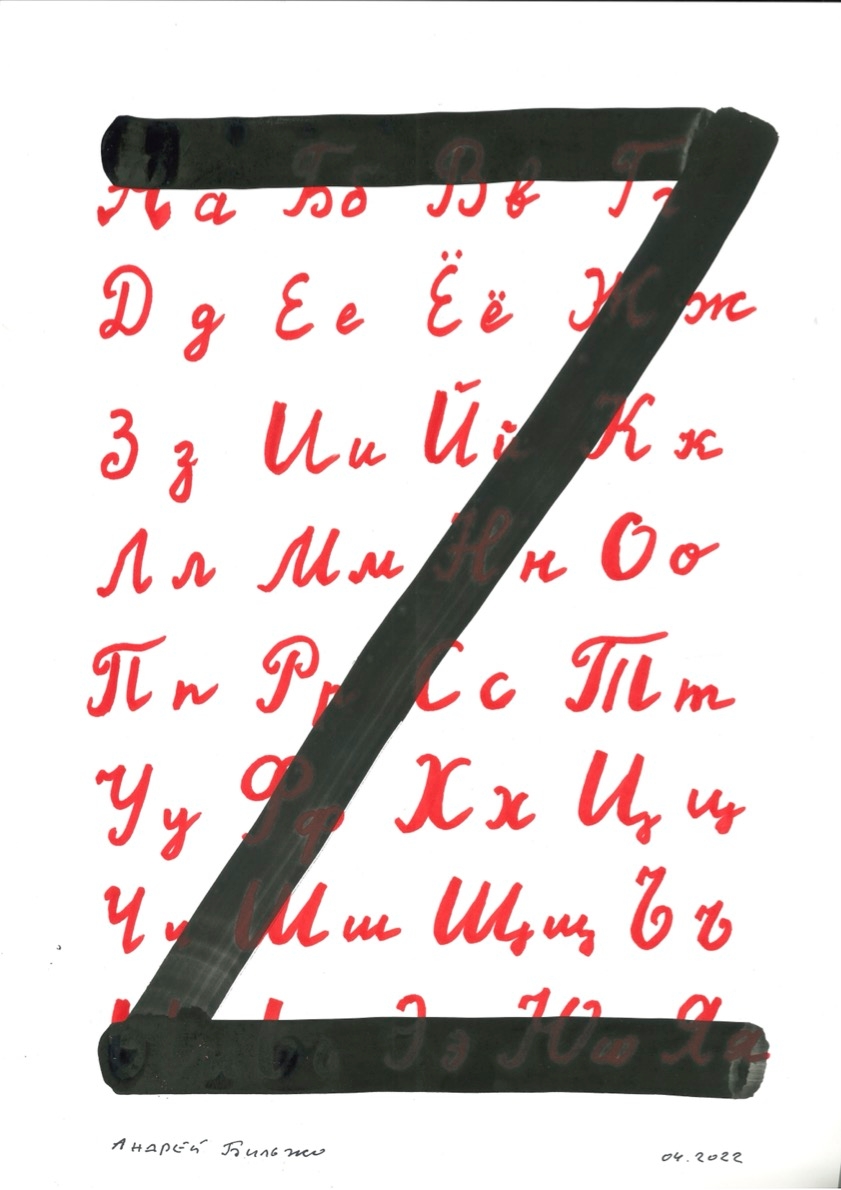 Аа Бб Вв Гг
Дд Ее Ёё Жж
Зз Ии Йй Кк
Лл Мм Нн Оо
Пп Рр Сс Тт
Уу Фф Хх Цц
Чч Шш Щщ Ъъ
Ээ Юю Яя
Андрей Бильжо 04.2022